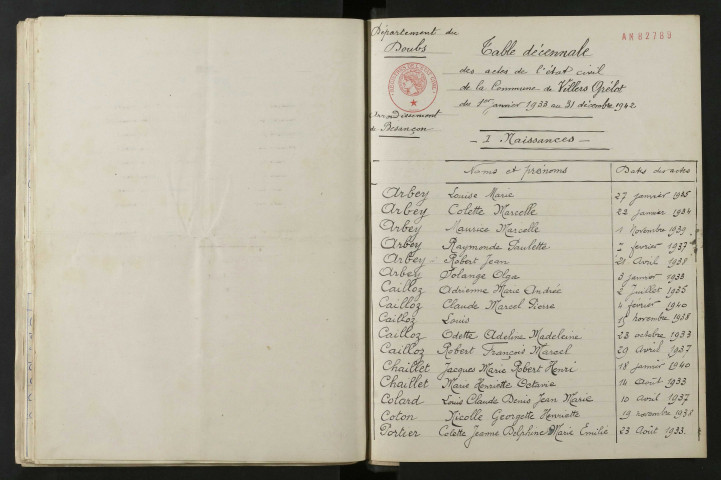 Département du
Doubs
AM 82789
Table décennale
des actes de l'état civil
de la Commune de Villers Grélot
du 1er janvier 1933 au 31 décembre 1942
Arrondissement
de Besançon
- I Naissances -
Noms et prénoms Dates des actes
Arbey Louise Marie 27 janvier 1935
Arbey Colette Marcelle 22 janvier 1934
Arbey Maurice Marcelle 1 Novembre 1939
Arbey Raymonde Paulette février 1937
Arbey Robert Jean 21 Avril 1938
Arbey Solange Olga 3 janvier 1933
Cailloz Adrienne Marie Andrée 2 Juillet 1935
Cailloz Claude Marcel Pierre 4 février 1940
Cailloz Louis 15 novembre 1938
Cailloz Odette Adeline Madeleine 23 octobre 1933
Cailloz Robert François Marcel 29 Avril 1937
Chaillet Jacques Marie Robert Henri 18 janvier 1940
Chaillet Marie Henriette Octavie 14 Août 1933
Colard Louis Claude Denis Jean Marie 10 Avril 1937
Coton Nicolle Georgette Henriette 19 novembre 1938
Portier Colette Jeanne Delphine Marie Emilie 23 Août 1933